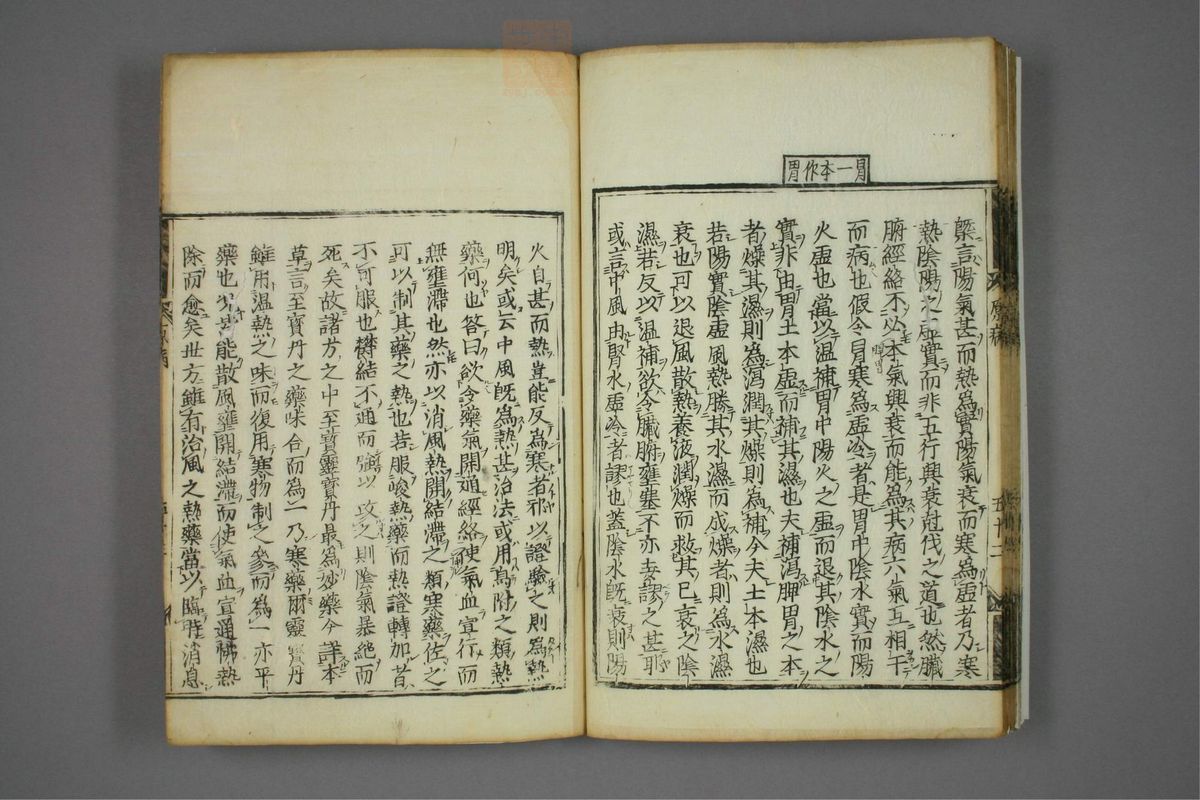 胃一本作胃
槩言陽氣甚而熱為實陽氣衰而寒為虛者乃寒
熱陰陽之虛實而非五行興衰尅伐之道也然臟
腑經絡不必本氣興衰而能為其病六氣互相干
而病也假令胃寒為虛冷者是胃中陰水實而陽
火虛也當以温補胃中陽火之虛而退其陰水之
實非由胃土本虛而補其濕也夫補瀉脾胃之本
者燥其濕則為瀉潤其燥則為補今夫土本濕也
若陽實陰虛風熱勝其水濕而成燥者則為水濕
衰也可以退風散熱養液潤燥而救其已衰之陰
濕若反以温補欲令臟腑壅塞不亦妄謬之甚耶
或言中風由腎水虛冷者謬也蓋陰水既衰則陽
原病
五十二
火自甚而熱豈能反為寒者邪以證驗之則為熱
明矣或云中風既為熱甚治法或用烏附之類熱
藥何也答曰欲令藥氣開通經絡使氣血宣行而
無壅滯也然亦以消風熱開結滯之類寒藥佐之
可以制其藥之熱也若服峻熱藥而熱證轉加者
不可服也欝結不通而強以攻之則陰氣暴絶而
死矣故諸方之中至寶靈寶丹最為妙藥今詳本
草言至寶丹之藥味合而為一乃寒藥爾靈寶丹
雖用温熱之味而復用寒物制之參而為一亦平
藥也皆能散風壅開結滯而使氣血宣通怫熱
除而愈矣世方雖有治風之熱藥當以臨時消息